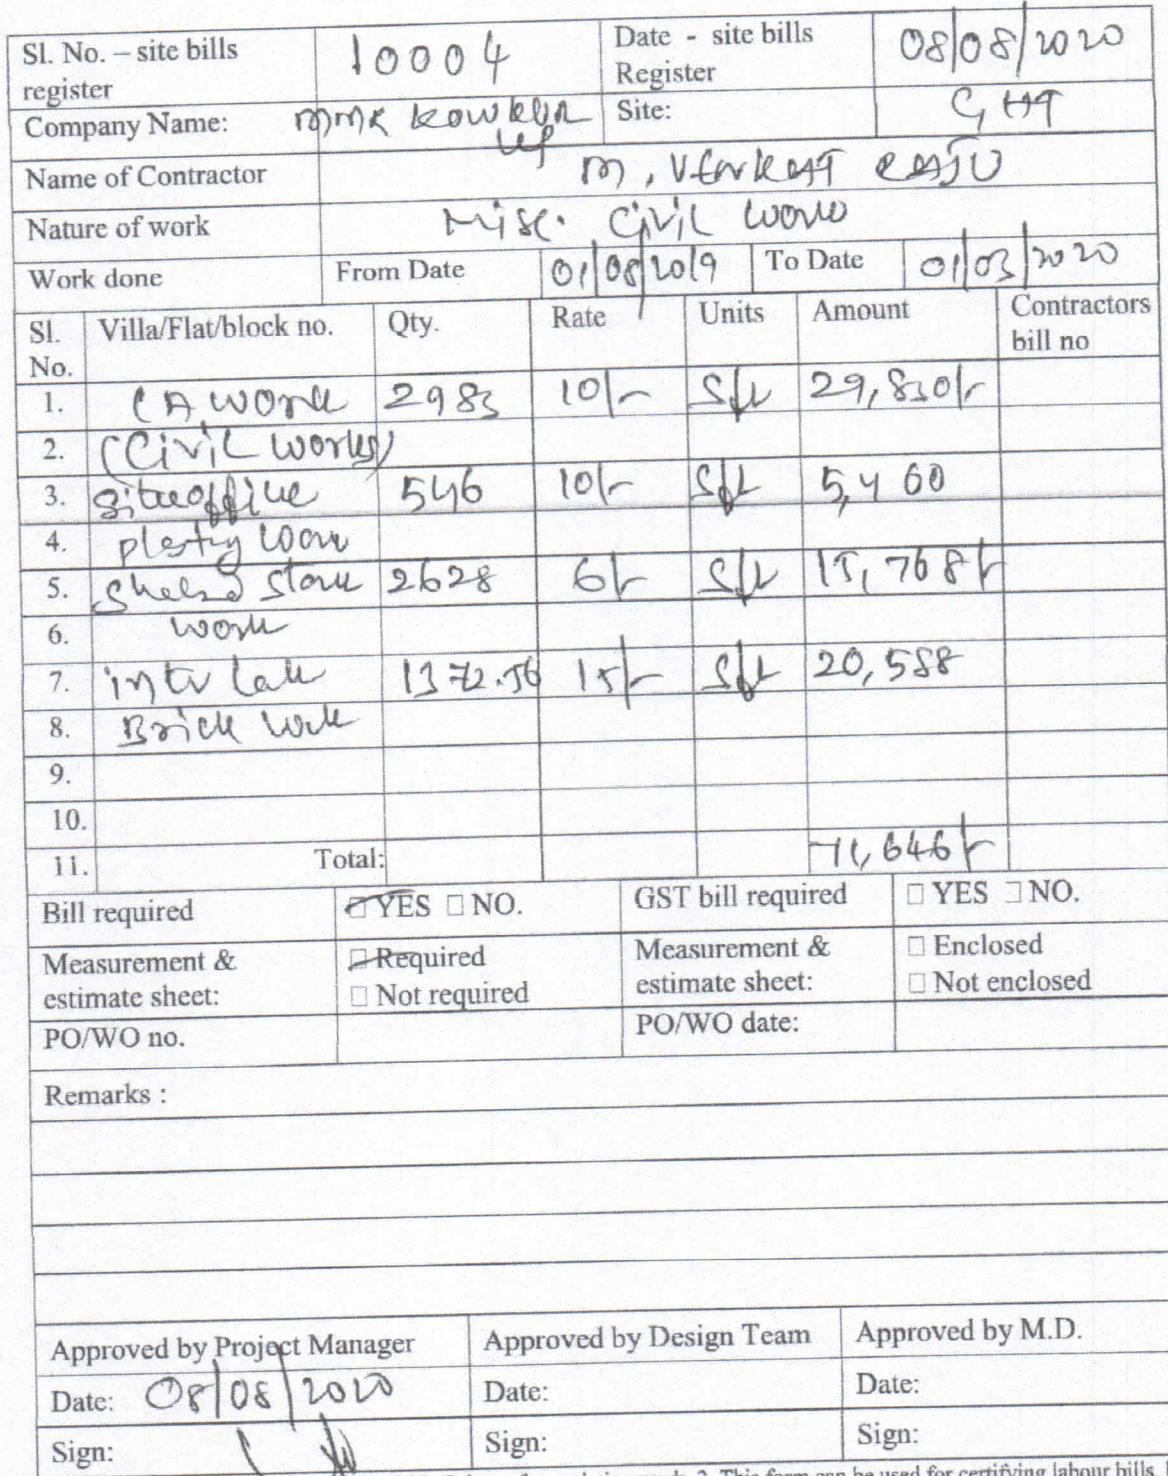 Sl. No. – site bills register 10004 Date - site bills Register 08/08/2020
Company Name: MMR KOWKUR LLP Site: GHT
Name of Contractor M. VENKAT RAJU
Nature of work Misc. Civil work
Work done From Date 01/08/2019 To Date 01/03/2020
Sl. No. Villa/Flat/block no. Qty. Rate Units Amount Contractors bill no
1. CA work 2983 10/- Sft 29,830/-
2. (Civil works)
3. site office 546 10/- Sft 5,460
4. work
5. store 2628 6/- Sft 15,768/-
6. work
7. inter lock 1372.56 15/- Sft 20,588
8. Brick work
9.
10.
11. Total: 71,646/-
Bill required ☑ YES □ NO. GST bill required □ YES □ NO.
Measurement & estimate sheet: ☑ Required □ Not required Measurement & estimate sheet: □ Enclosed □ Not enclosed
PO/WO no. PO/WO date:
Remarks :
Approved by Project Manager Approved by Design Team Approved by M.D.
Date: 08/08/2020 Date: Date:
Sign: Sign: Sign:
2. This form can be used for certifying labour bills.